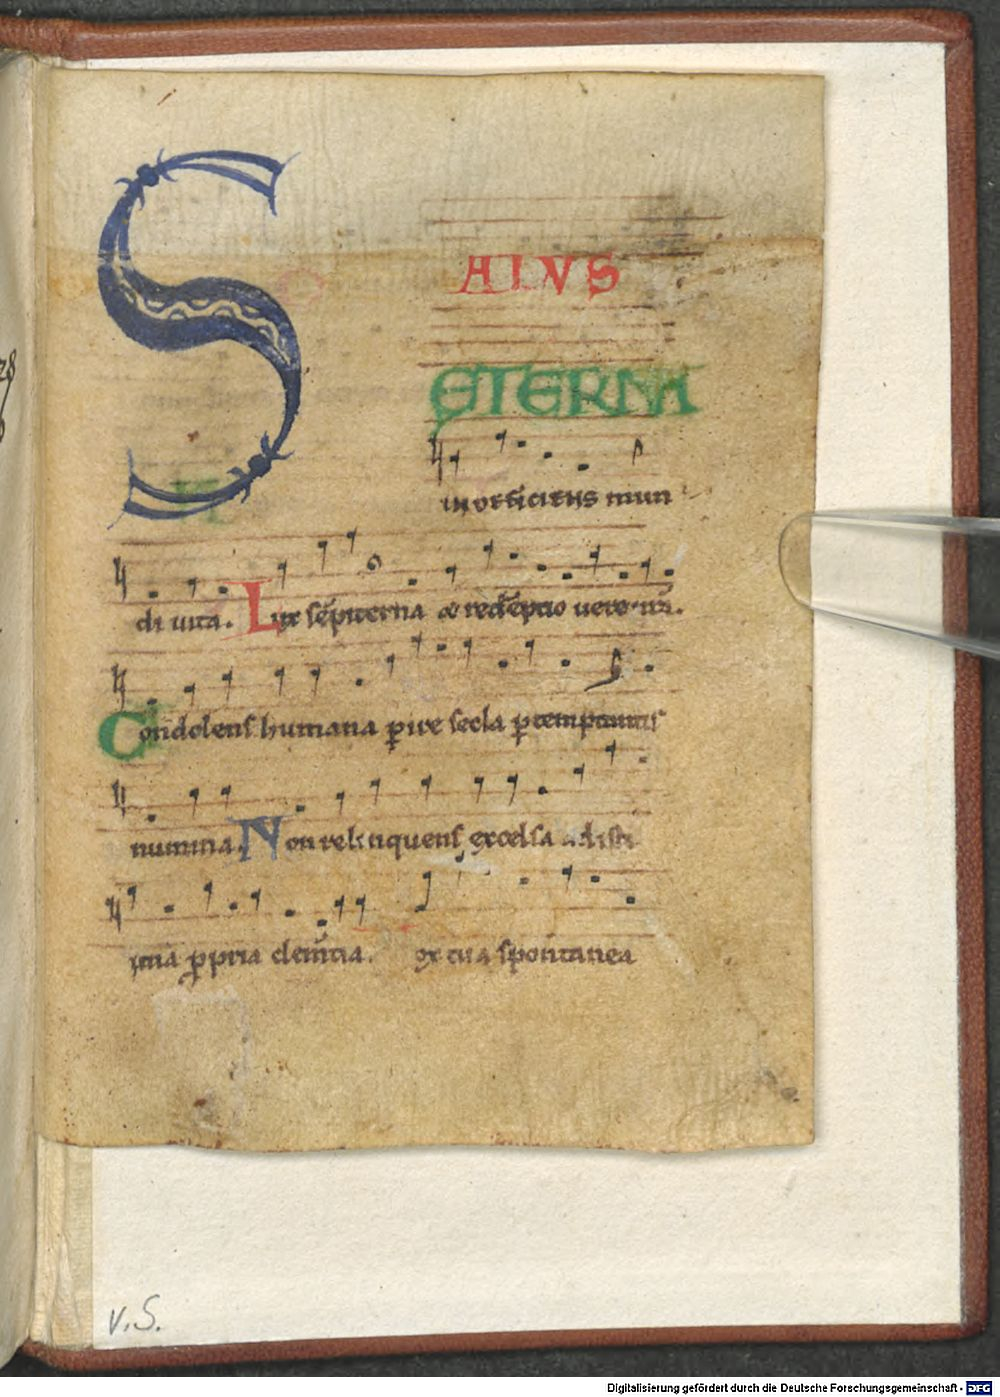 SALVS
ETERNA
indeficiens mun
di uita. Lux sēpiterna & redēptio uere nrā.
Condolens humana ꝑire secla ꝑ temptantis
numina. Non relinquens excelsa adisti
ima ꝓpria clem̄tia. ox tua spontanea
v.S.
Digitalisierung gefördert durch die Deutsche Forschungsgemeinschaft - DFG